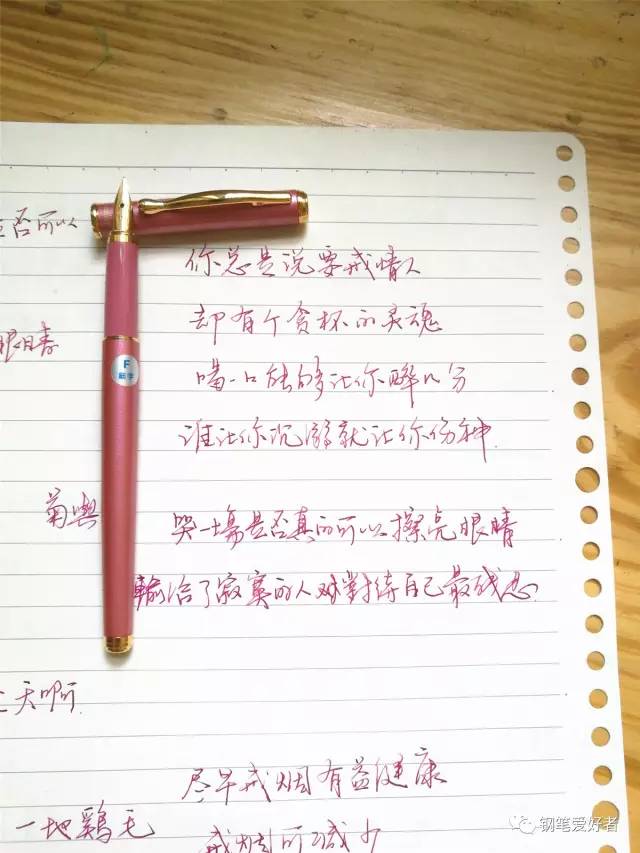 否可以
你总是说要戒情人
却有个贪杯的灵魂
眼睛
喝一口能够让你醉几分
谁让你沉溺就让你伤神
菊與
哭一場是否真的可以擦亮眼睛
輸给了寂寞的人对對待自己最残忍
天啊
尽早戒烟有益健康
一地鷄毛
戒烟可减少
F
钢笔爱好者